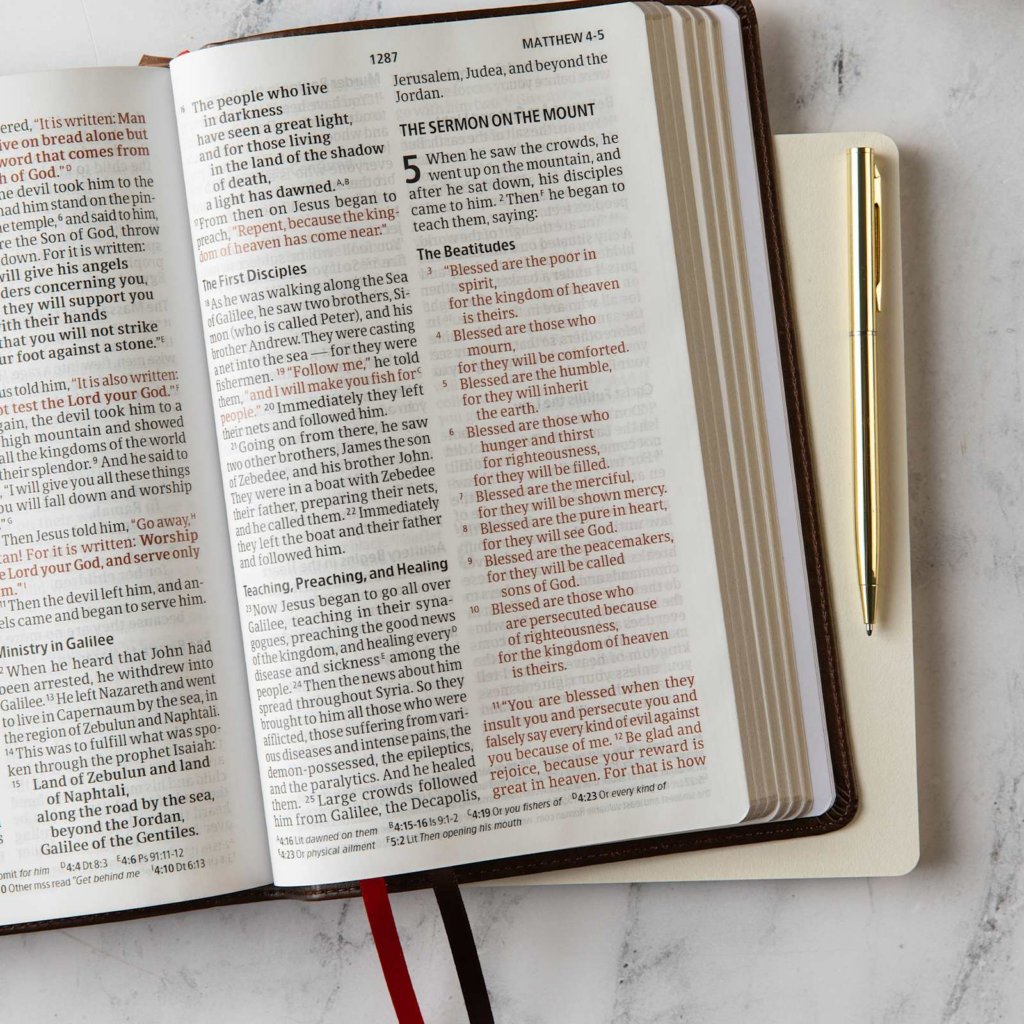 ered, “It is written: Man
ive on bread alone but
word that comes from
h of God.”D
he devil took him to the
had him stand on the pin-
he temple,6 and said to him,
re the Son of God, throw
down. For it is written:
will give his angels
ders concerning you,
they will support you
with their hands
that you will not strike
ur foot against a stone.”E
us told him, “It is also written:
ot test the Lord your God.”F
gain, the devil took him to a
high mountain and showed
all the kingdoms of the world
their splendor.9 And he said to
“I will give you all these things
ou will fall down and worship
”G
Then Jesus told him, “Go away,H
tan! For it is written: Worship
e Lord your God, and serve only
m.”I
11 Then the devil left him, and an-
els came and began to serve him.
Ministry in Galilee
2 When he heard that John had
been arrested, he withdrew into
Galilee.13 He left Nazareth and went
to live in Capernaum by the sea, in
the region of Zebulun and Naphtali.
14 This was to fulfill what was spo-
ken through the prophet Isaiah:
15 Land of Zebulun and land
of Naphtali,
along the road by the sea,
beyond the Jordan,
Galilee of the Gentiles.
omit for him D4:4 Dt 8:3 E4:6 Ps 91:11-12
0 Other mss read "Get behind me I4:10 Dt 6:13
1287
MATTHEW 4-5
16 The people who live
in darkness
have seen a great light,
and for those living
in the land of the shadow
of death,
a light has dawned.A,B
17 From then on Jesus began to
preach, “Repent, because the king-
dom of heaven has come near.”
The First Disciples
18 As he was walking along the Sea
of Galilee, he saw two brothers, Si-
mon (who is called Peter), and his
brother Andrew. They were casting
a net into the sea — for they were
fishermen. 19 “Follow me,” he told
them, “and I will make you fish forC
people.” 20 Immediately they left
their nets and followed him.
21 Going on from there, he saw
two other brothers, James the son
of Zebedee, and his brother John.
They were in a boat with Zebedee
their father, preparing their nets,
and he called them. 22 Immediately
they left the boat and their father
and followed him.
Teaching, Preaching, and Healing
23 Now Jesus began to go all over
Galilee, teaching in their syna-
gogues, preaching the good news
of the kingdom, and healing everyD
disease and sicknessE among the
people. 24 Then the news about him
spread throughout Syria. So they
brought to him all those who were
afflicted, those suffering from vari-
ous diseases and intense pains, the
demon-possessed, the epileptics,
and the paralytics. And he healed
them. 25 Large crowds followed
him from Galilee, the Decapolis,
Jerusalem, Judea, and beyond the
Jordan.
THE SERMON ON THE MOUNT
5 When he saw the crowds, he
went up on the mountain, and
after he sat down, his disciples
came to him. 2 ThenF he began to
teach them, saying:
The Beatitudes
3 “Blessed are the poor in
spirit,
for the kingdom of heaven
is theirs.
4 Blessed are those who
mourn,
for they will be comforted.
5 Blessed are the humble,
for they will inherit
the earth.
6 Blessed are those who
hunger and thirst
for righteousness,
for they will be filled.
7 Blessed are the merciful,
for they will be shown mercy.
8 Blessed are the pure in heart,
for they will see God.
9 Blessed are the peacemakers,
for they will be called
sons of God.
10 Blessed are those who
are persecuted because
of righteousness,
for the kingdom of heaven
is theirs.
11 “You are blessed when they
insult you and persecute you and
falsely say every kind of evil against
you because of me. 12 Be glad and
rejoice, because your reward is
great in heaven. For that is how
A4:16 Lit dawned on them B4:15-16 Is 9:1-2 C4:19 Or you fishers of D4:23 Or every kind of
E4:23 Or physical ailment F5:2 Lit Then opening his mouth